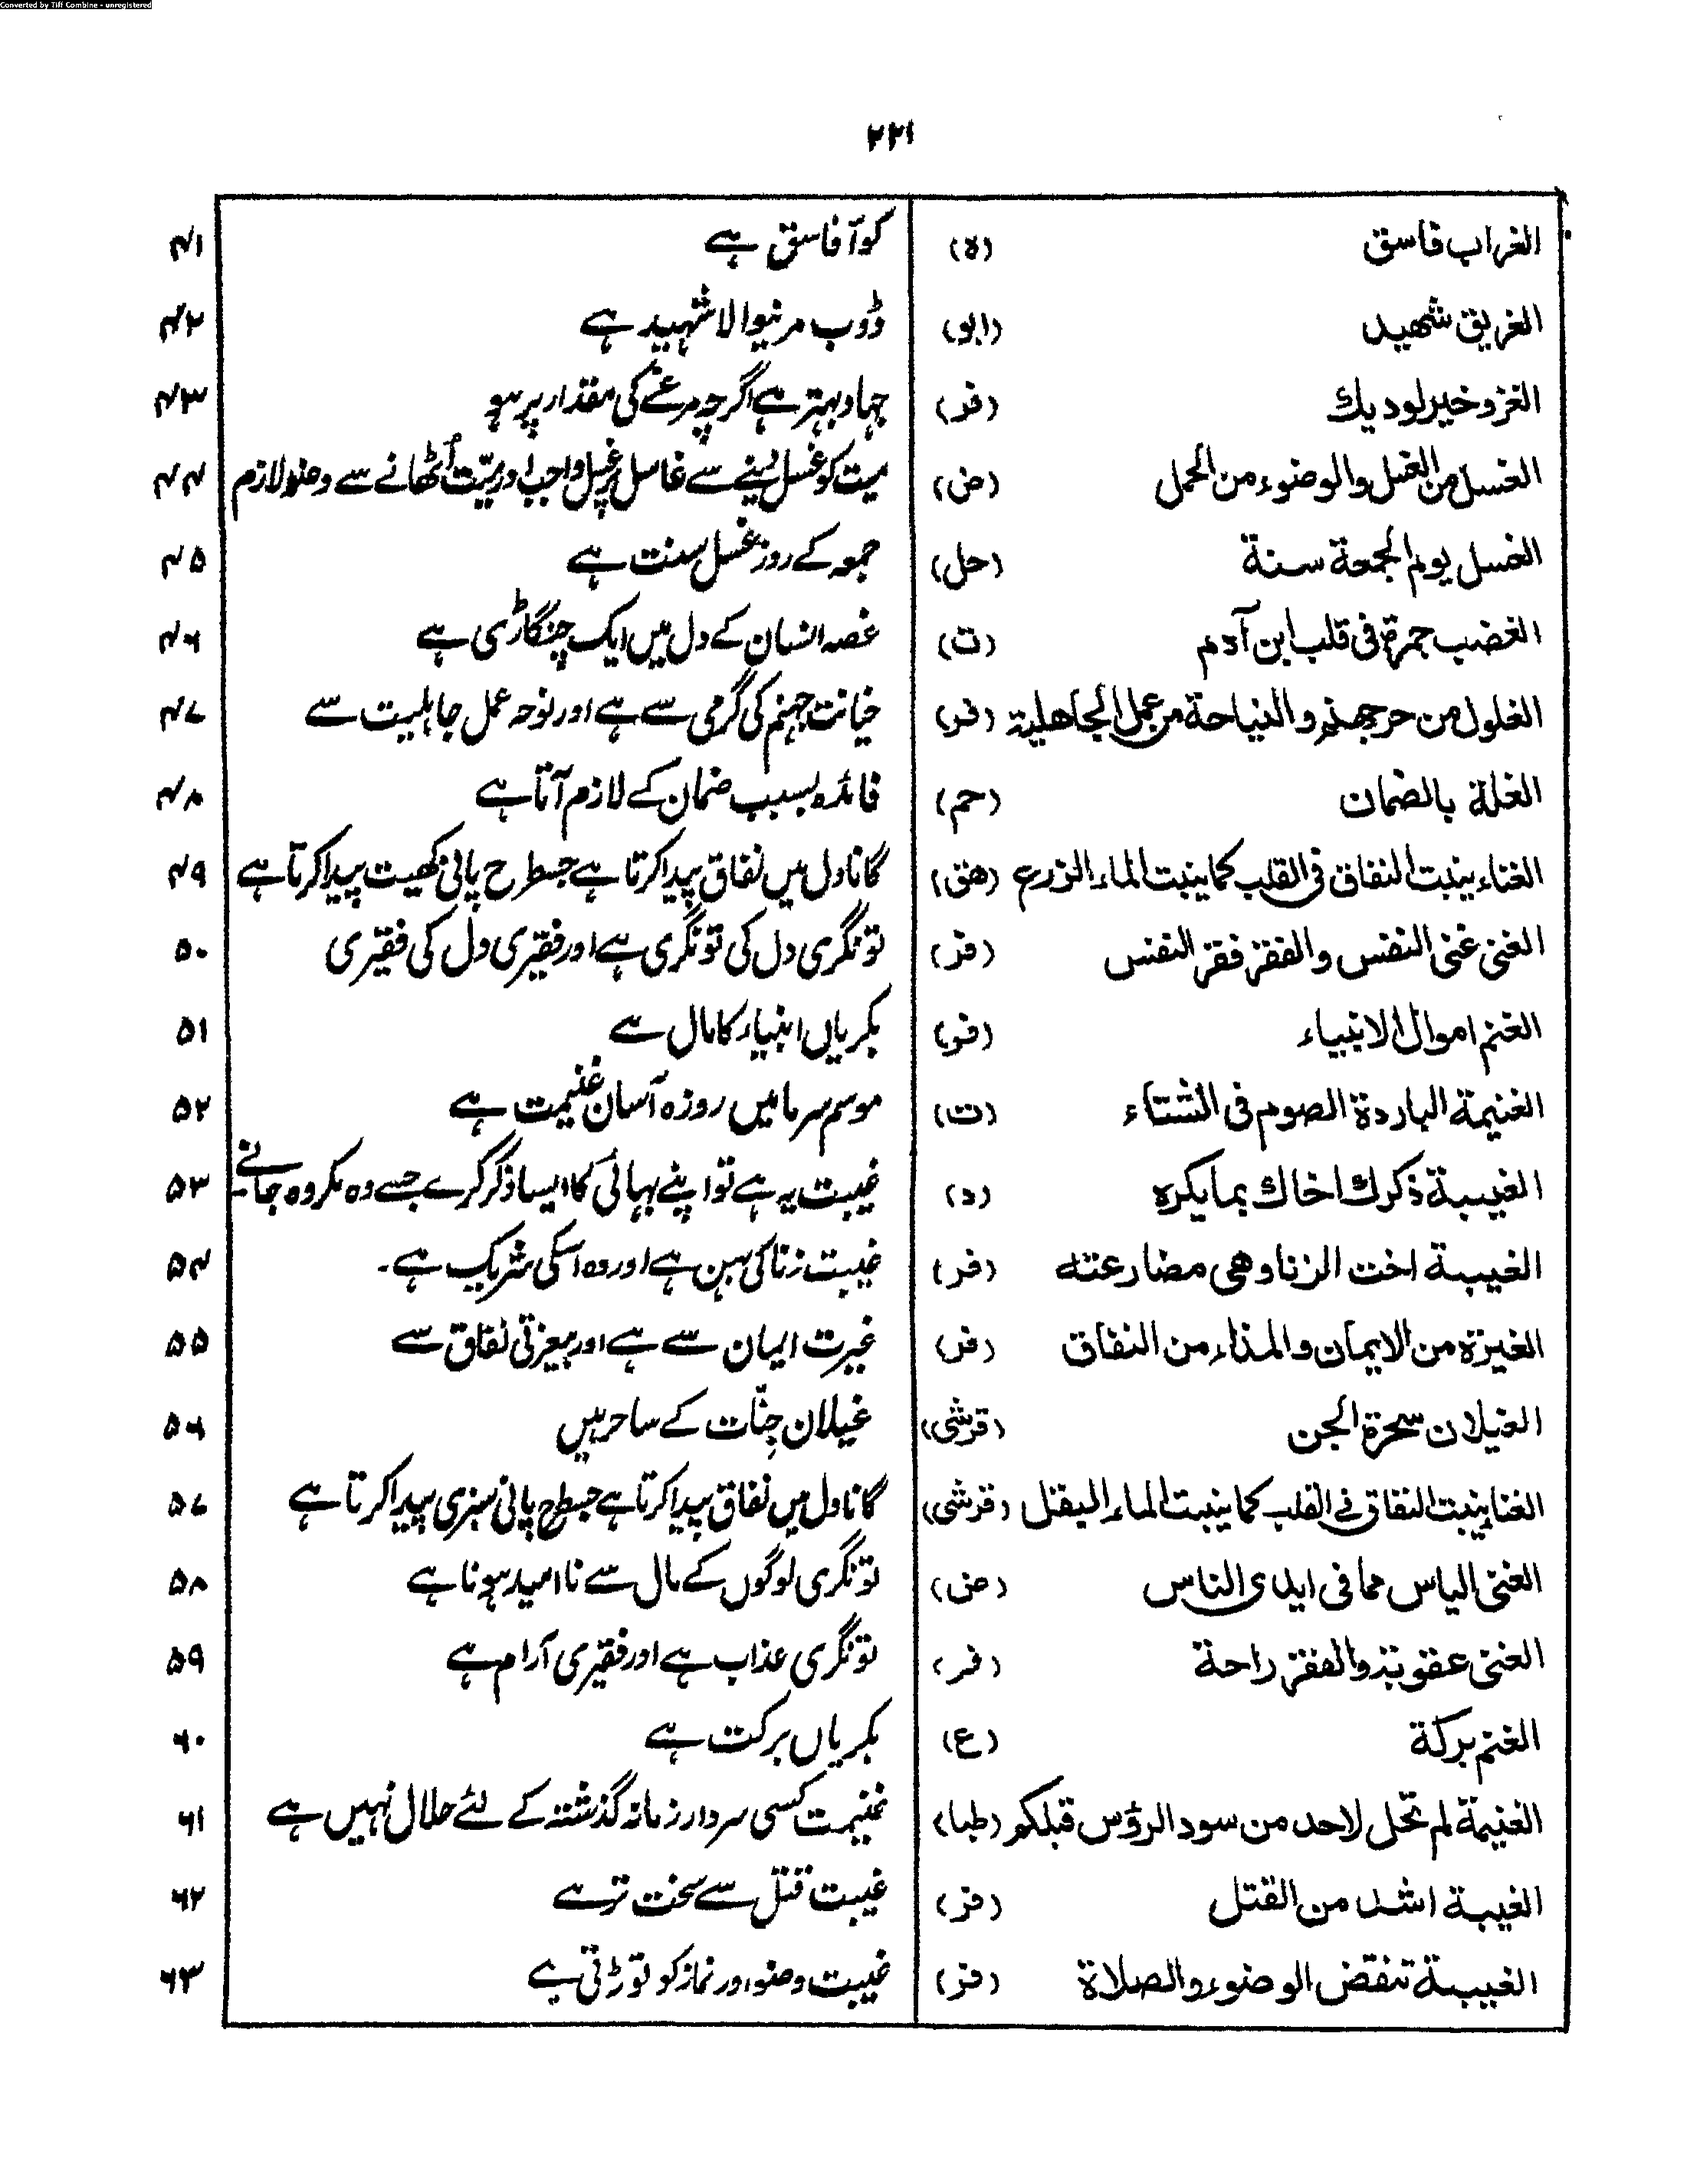 Converted by Tiff Combine - unregistered
۲۲۱
الغراب فاسق (ہ) کوّا فاسق ہے ۴۱
الغریق شهید (ابو) ڈوب مرنیوالا شہید ہے ۴۲
الغزو خیر لودیك (فر) جہاد بہتر ہے اگرچہ مرغے کی مقدار پر ہو ۴۳
الغسل من الغسل والوضوء من الحمل (ض) میت کو غسل دینے سے غاسل پر غسل واجب اور میّت اُٹھانے سے وضو لازم ۴۴
الغسل یوم الجمعة سنة (حل) جمعہ کے روز غسل سنت ہے ۴۵
الغضب جمرة فی قلب ابن آدم (ت) غصہ انسان کے دل میں ایک چنگاڑی ہے ۴۶
الغلول من حرجهنم والنیاحة من عمل الجاهلیة (فر) خیانت جہنم کی گرمی سے ہے اور نوحہ عمل جاہلیت سے ۴۷
الغلة بالضمان (حم) فائدہ بسبب ضمان کے لازم آتا ہے ۴۸
الغناء ینبت النفاق فی القلب کما ینبت الماء الزرع (هق) گانا دل میں نفاق پیدا کرتا ہے جسطرح پانی کھیت پیدا کرتا ہے ۴۹
الغنی غنی النفس والفقر فقر النفس (فر) تونگری دل کی تونگری ہے اور فقیری دل کی فقیری ۵۰
الغنم اموال الانبیاء (فر) بکریاں انبیاء کا مال ہے ۵۱
الغنیمة الباردة الصوم فی الشتاء (ت) موسم سرما میں روزہ آسان غنیمت ہے ۵۲
الغیبة ذکرك اخاك بما یکره (د) غیبت یہ ہے تو اپنے بہائی کا ایسا ذکر کرے جسے وہ مکروہ جانے۔ ۵۳
الغیبة اخت الزنا وهی مضارعته (فر) غیبت زنا کی بہن ہے اور وہ اسکی شریک ہے۔ ۵۴
الغیرة من الایمان والمذاء من النفاق (فر) غیرت ایمان سے ہے اور بیعزتی نفاق سے ۵۵
الغیلان سحرة الجن (قرشی) غیلان جنّات کے ساحر ہیں ۵۶
الغناء ینبت النفاق فی القلب کما ینبت الماء البقل (قرشی) گانا دل میں نفاق پیدا کرتا ہے جسطرح پانی سبزی پیدا کرتا ہے ۵۷
الغنی الیاس مما فی ایدی الناس (ض) تونگری لوگوں کے مال سے ناامید ہونا ہے ۵۸
الغنی عقوبة والفقر راحة (فر) تونگری عذاب ہے اور فقیری آرام ہے ۵۹
الغنم برکة (ع) بکریاں برکت ہے ۶۰
الغنیمة لم تحل لاحد من سود الرؤس قبلکم (طبا) غنیمت کسی سردار زمانہ گذشتہ کے لئے حلال نہیں ہے ۶۱
الغیبة اشد من القتل (فر) غیبت قتل سے سخت تر ہے ۶۲
الغیبة تنقض الوضوء والصلاة (فر) غیبت وضو اور نماز کو توڑتی ہے ۶۳